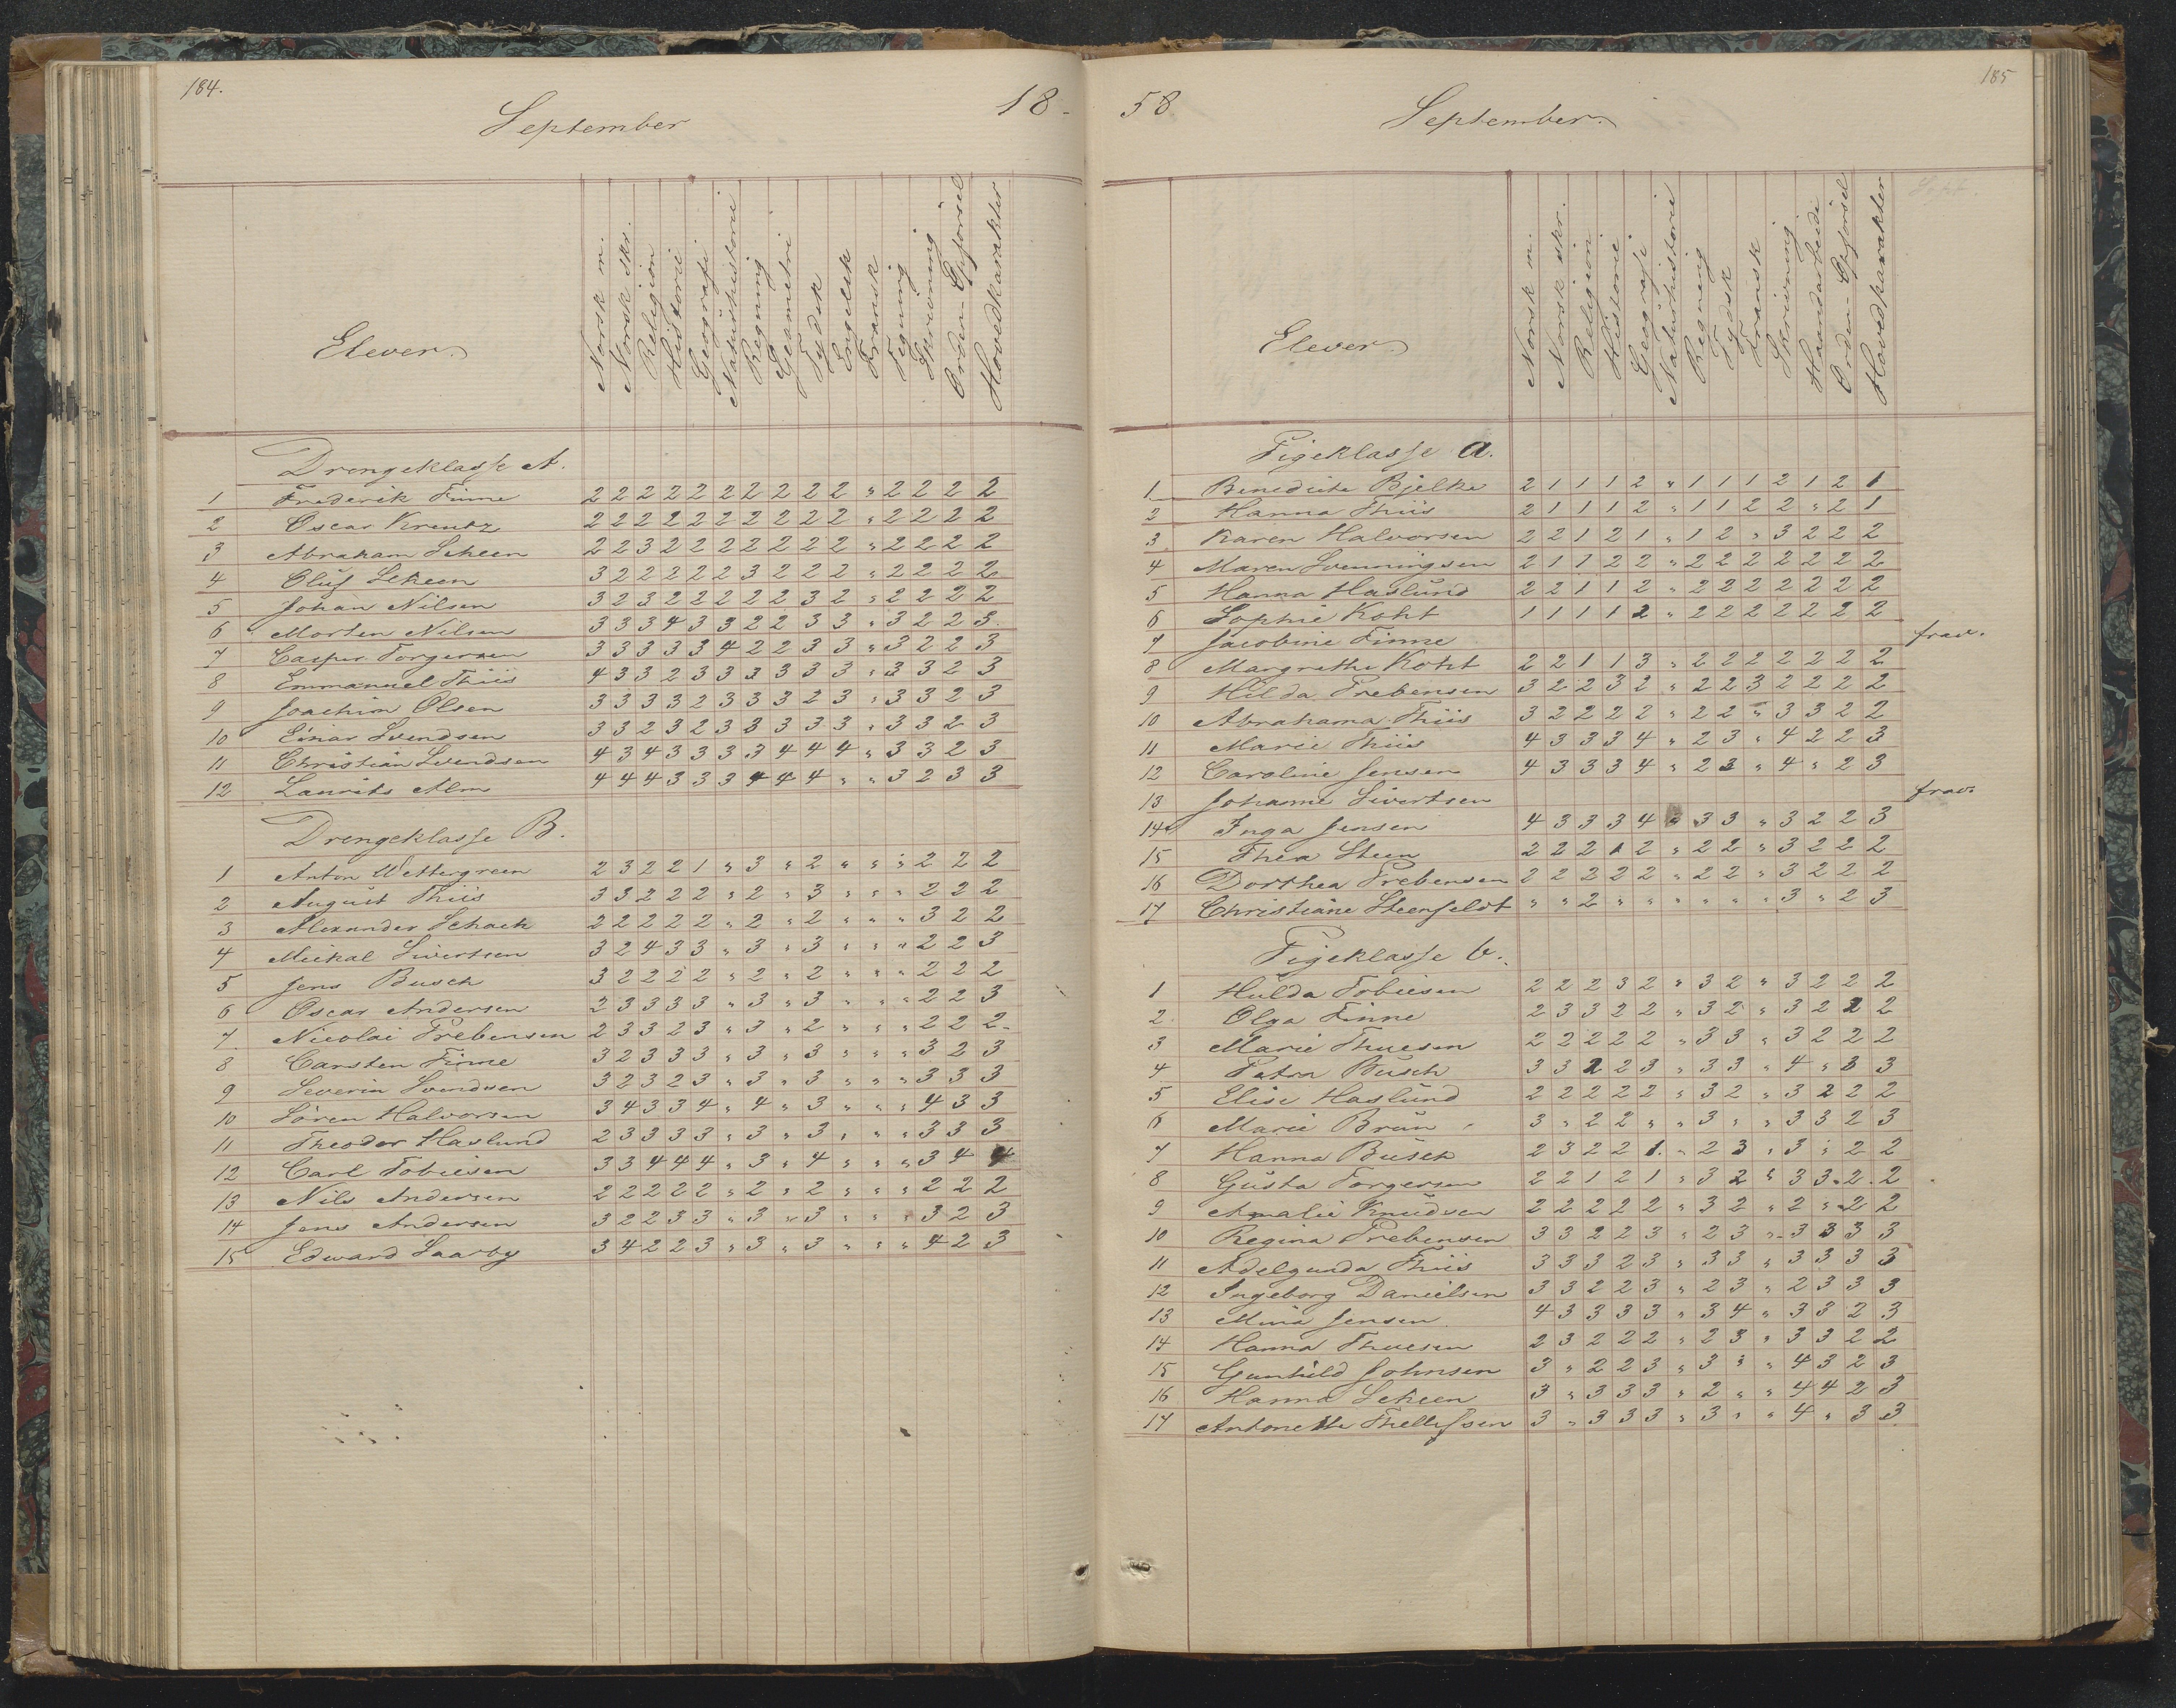 184.
September
18-
Elever.
Norsk m.
Norsk skr.
Religion
Historie
Geografi
Naturhistorie
Regning
Geometri
Tydsk
Engelsk
Fransk
Tegning
Skrivning
Orden-Opførsel
Hovedkarakter
Drengeklasse A.
1 Frederik Finne 2 2 2 2 2 2 2 2 2 2 " 2 2 2 2
2 Oscar Kreutz 2 2 2 2 2 2 2 2 2 2 " 2 2 2 2
3 Abraham Scheen 2 2 3 2 2 2 2 2 2 2 " 2 2 2 2
4 Oluf Scheen 3 2 2 2 2 2 3 2 2 2 " 2 2 2 2
5 Johan Nilsen 3 2 3 2 2 2 2 2 3 2 " 2 2 2 2
6 Morten Nilsen 3 3 3 4 3 3 2 2 3 3 " 3 2 2 3.
7 Casper Torgersen 3 3 3 3 3 4 2 2 3 3 " 3 2 2 3
8 Emmanuel Thiis 4 3 3 2 3 3 3 3 3 3 " 3 3 2 3
9 Joachim Olsen 3 3 3 3 2 3 3 3 2 3 " 3 3 2 3
10 Einar Svendsen 3 3 2 3 2 3 3 3 3 3 " 3 3 2 3
11 Christian Svendsen 4 3 4 3 3 3 3 4 4 4 " 3 3 2 3
12 Laurits Alm 4 4 4 3 3 3 4 4 4 " " 3 2 3 3
Drengeklasse B.
1 Anton Wettergreen 2 3 2 2 1 " 3 " 2 " " " 2 2 2
2 August Thiis 3 3 2 2 2 " 2 " 3 " " " 2 2 2
3 Alexander Schach 2 2 2 2 2 " 2 " 2 " " " 3 2 2
4 Meikal Sivertsen 3 2 4 3 3 " 3 " 3 " " " 2 2 3
5 Jens Busch 3 2 2 2 2 " 2 " 2 " " " 2 2 2
6 Oscar Andersen 2 3 3 3 3 " 3 " 3 " " " 2 2 3
7 Nicolai Prebensen 2 3 3 2 3 " 3 " 2 " " " 2 2 2-
8 Carsten Finne 3 2 3 3 3 " 3 " 3 " " " 3 2 3
9 Severin Svendsen 3 2 3 2 3 " 3 " 3 " " " 3 3 3
10 Sören Halvorsen 3 4 3 3 4 " 4 " 3 " " " 4 3 3
11 Theodor Haslund 2 3 3 3 3 " 3 " 3 " " " 3 3 3
12 Carl Tobiesen 3 3 4 4 4 " 3 " 4 " " " 3 4 4
13 Nils Andersen 2 2 2 2 2 " 2 " 2 " " " 2 2 2
14 Jens Andersen 3 2 2 3 3 " 3 " 3 " " " 3 2 3
15 Edward Saarby 3 4 2 2 3 " 3 " 3 " " " 4 2 3
185
58
September.
Elever.
Norsk m.
Norsk skr.
Religion
Historie
Geografi
Naturhistorie
Regning
Tydsk
Fransk
Skrivning
Haandarbeide
Orden-Opførsel
Hovedkarakter
Pigeklasse a.
1 Benedicte Bjelke 2 1 1 1 2 " 1 1 1 2 1 2 1
2 Hanna Thiis 2 1 1 1 2 " 1 1 2 2 " 2 1
3 Karen Halvorsen 2 2 1 2 1 " 1 2 " 3 2 2 2
4 Maren Svenningsen 2 1 1 2 2 " 2 2 2 2 2 2 2
5 Hanna Haslund 2 2 1 1 2 " 2 2 2 2 2 2 2
6 Sophie Koht 1 1 1 1 2 " 2 2 2 2 2 2 2
7 Jacobine Finne frav.
8 Margrethe Koht 2 2 1 1 3 " 2 2 2 2 2 2 2
9 Hilda Prebensen 3 2 2 3 2 " 2 2 3 2 2 2 2
10 Abrahama Thiis 3 2 2 2 2 " 2 2 " 3 3 2 2
11 Marie Thiis 4 3 3 3 4 " 2 3 " 4 2 2 3
12 Caroline Jensen 4 3 3 3 4 " 2 3 " 4 " 2 3
13 Johanne Sivertsen frav.
14 Inga Jensen 4 3 3 3 4 " 3 3 " 3 2 2 3
15 Thea Steen 2 2 2 1 2 " 2 2 " 3 2 2 2
16 Dorthea Prebensen 2 2 2 2 2 " 2 2 " 3 2 2 2
17 Christiane Steenfeldt " " 2 " " " " " " 3 " 2 3
Pigeklasse b.
1 Hulda Tobiesen 2 2 2 3 2 " 3 2 " 3 2 2 2
2. Olga Finne 2 3 3 2 2 " 3 2 " 3 2 2 2
3 Marie Thuesen 2 2 2 2 2 " 3 3 " 3 2 2 2
4 Petra Busch 3 3 2 2 3 " 3 3 " 4 " 3 3
5 Elise Haslund 2 2 2 2 2 " 3 2 " 3 2 2 2
6 Marie Brün 3 " 2 2 " " 3 " " 3 3 2 3
7 Hanna Busch 2 3 2 2 1. " 2 3 " 3 " 2 2
8 Gusta Torgersen 2 2 1 2 1 " 3 2 " 3 3 2 2
9 Amalie Knudsen 2 2 2 2 2 " 3 2 " 2 " 2 2
10 Regina Prebensen 3 3 2 2 3 " 2 3 " 3 3 3 3
11 Adelgunda Thiis 3 3 3 2 3 " 3 3 " 3 3 3 3
12 Ingeborg Danielsen 3 3 2 2 3 " 2 3 " 2 3 3 3
13 Mina Jensen 4 3 3 3 3 " 3 4 " 3 3 2 3
14 Hanna Thuesen 2 3 2 2 2 " 2 3 " 3 3 2 2
15 Gunhild Johnsen 3 " 2 2 3 " 3 " " 4 3 2 3
16 Hanna Scheen 3 " 3 3 3 " 2 " " 4 4 2 3
17 Antonette Thellefsen 3 " 3 3 3 " 3 " " 4 " 3 3